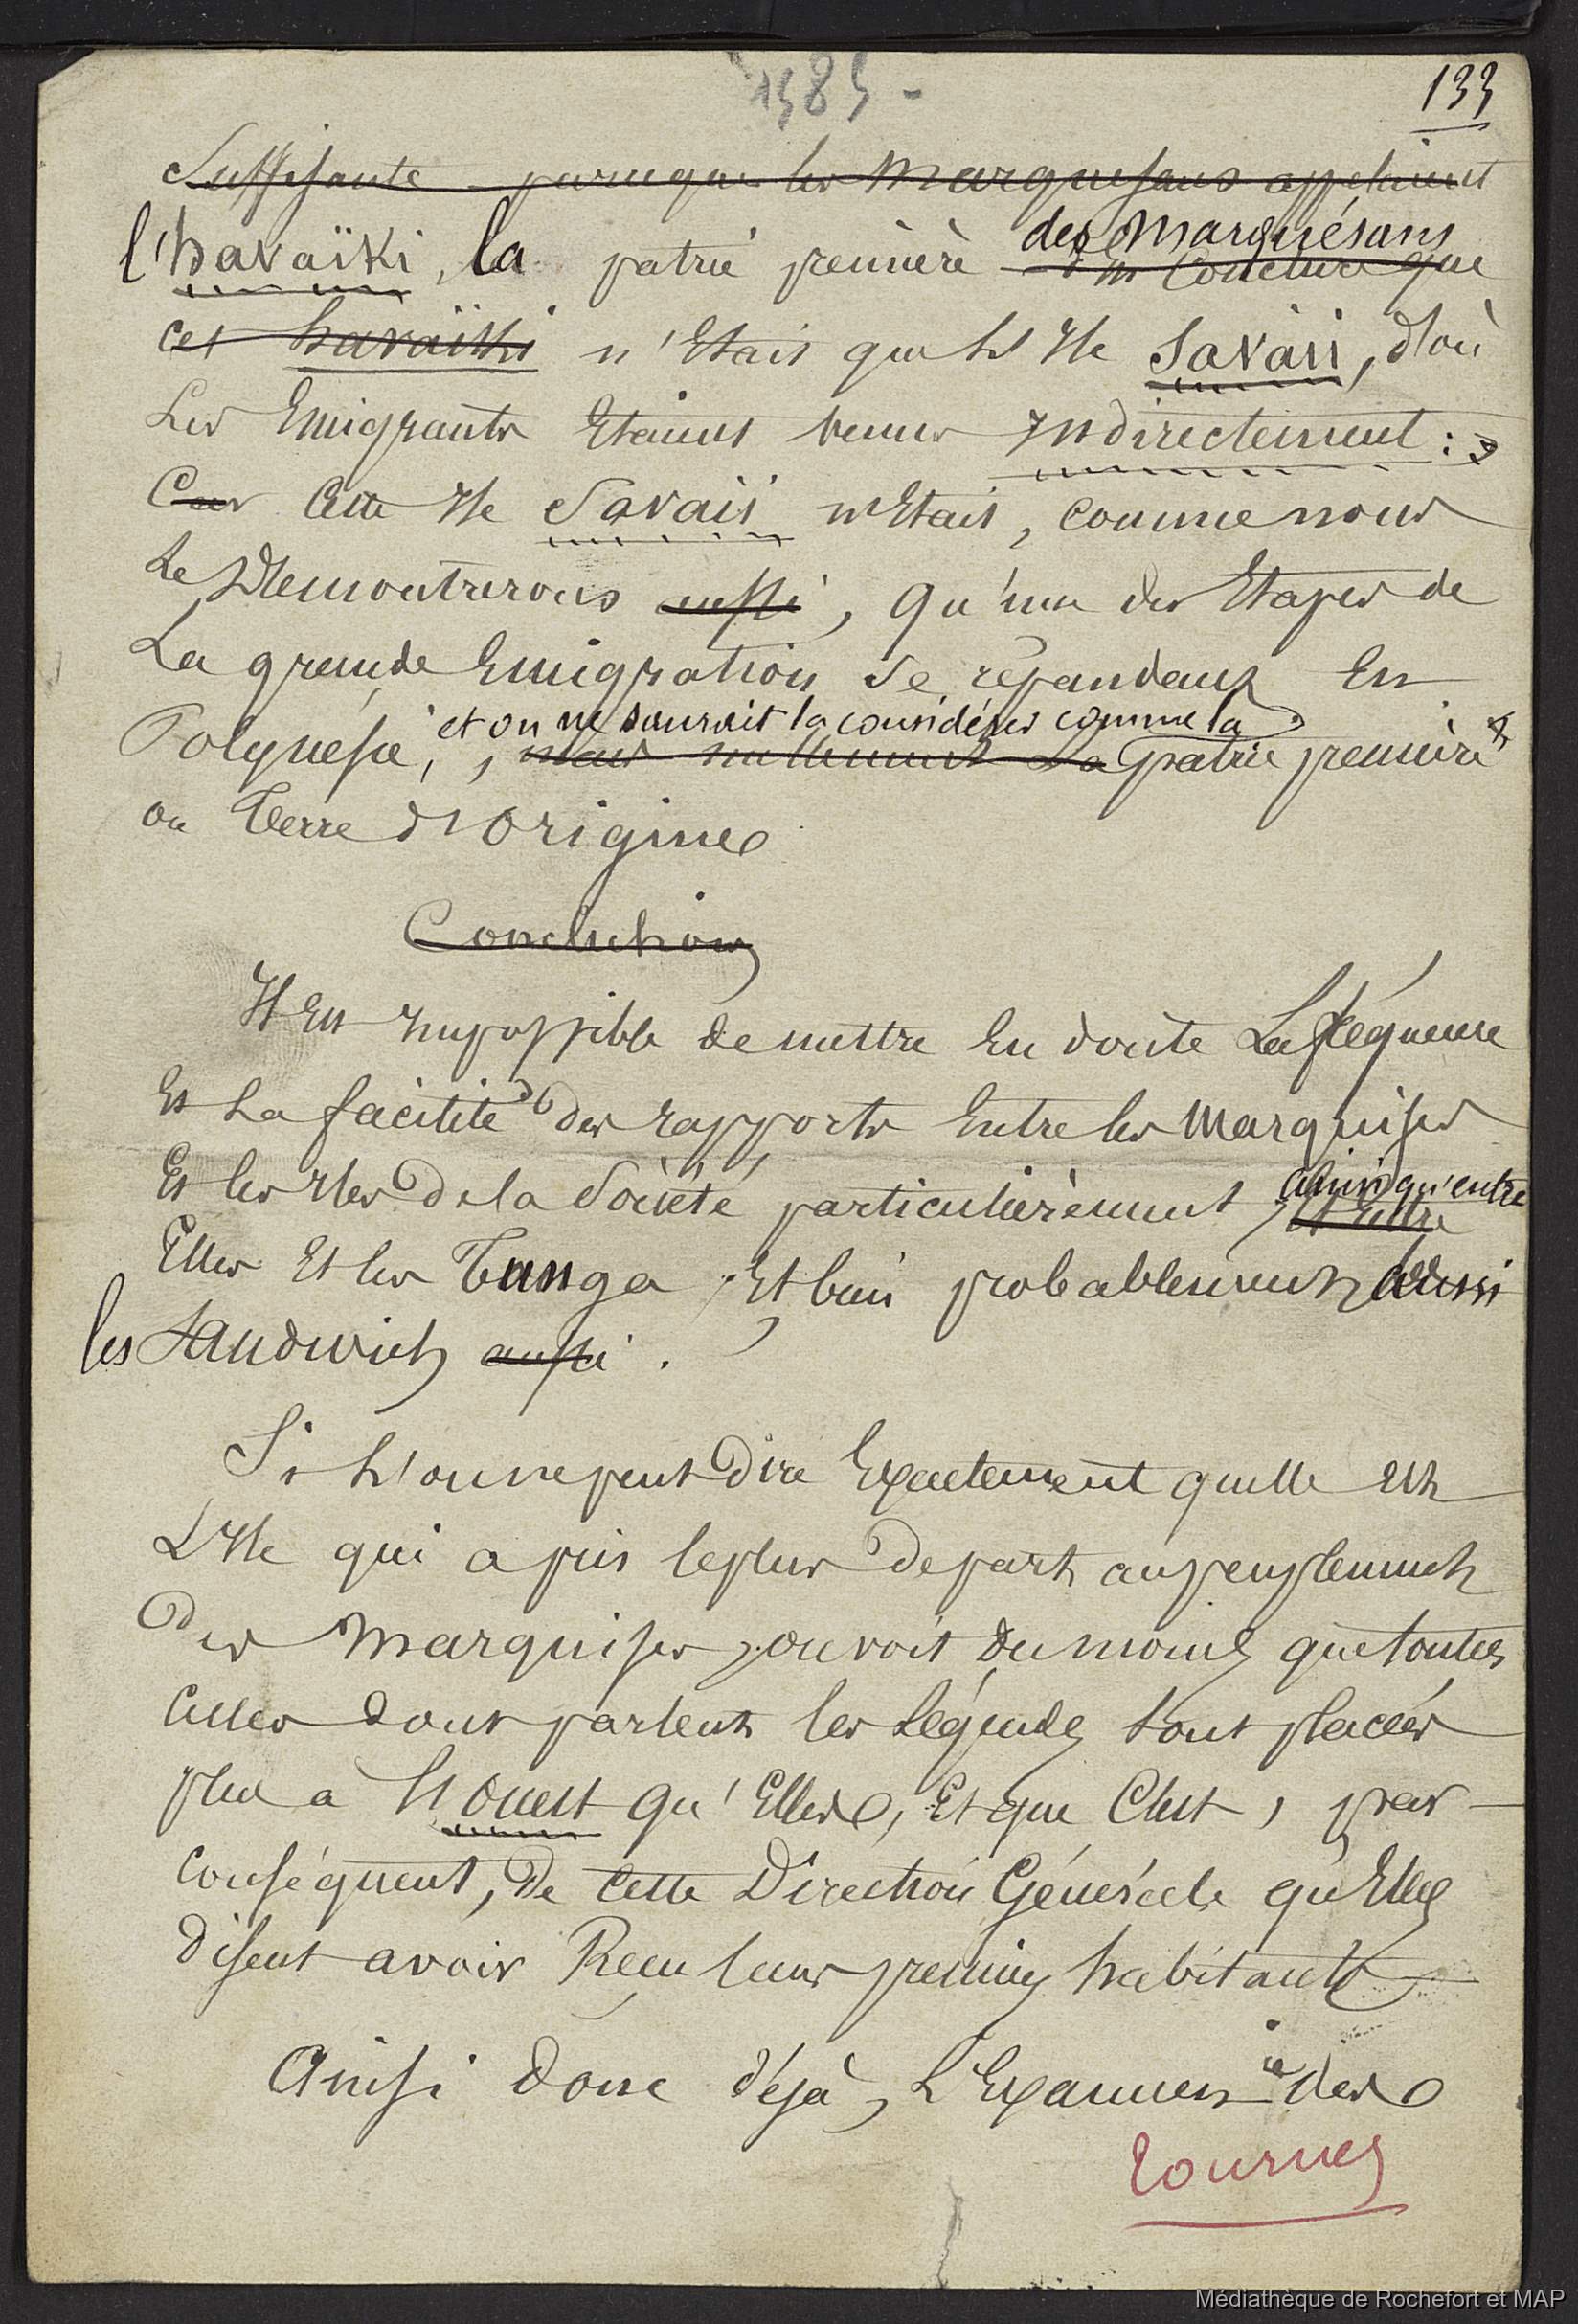 1585 -
133
Suffisante puisque les Marquesans appelaient
des Marquésans
l'havaïki, la patrie première d'en conclure que
cet havaïki n'Etait que L'Ile Savaii, d'où
Les Emigrants Etaient venus Indirectement :
Car Cette Ile Savaii n'Etait, comme nous
Le Démontrerons aussi, qu'une des Etapes de
La grande Emigration se répandant En
et on ne saurait la considérer comme la
Polynésie, mais nullement La patrie première
ou Terre d'Origine
Conclusion
Il Est Impossible de mettre En doute La fréquence
Et La facilité des rapports Entre les Marquises
ainsi qu'entre
Et les Iles de la Société particulièrement, et entre
Elles Et les Tunga, Et bien probablement aussi
les Sandwich aussi.
Si L'on ne peut Dire Exactement quelle Est
L'Ile qui a pris le plus de part au peuplement
Des Marquises, on voit du moins que toutes
Celles dont parlent les Légendes sont placées
plus à L'Ouest qu'Elles, Et que C'Est, par
conséquent, De Cette Direction Générale qu'Elles
Disent avoir Reçu leurs premiers habitants
Ainsi donc déjà, L'Examen des
Tournez
Médiathèque de Rochefort et MAP